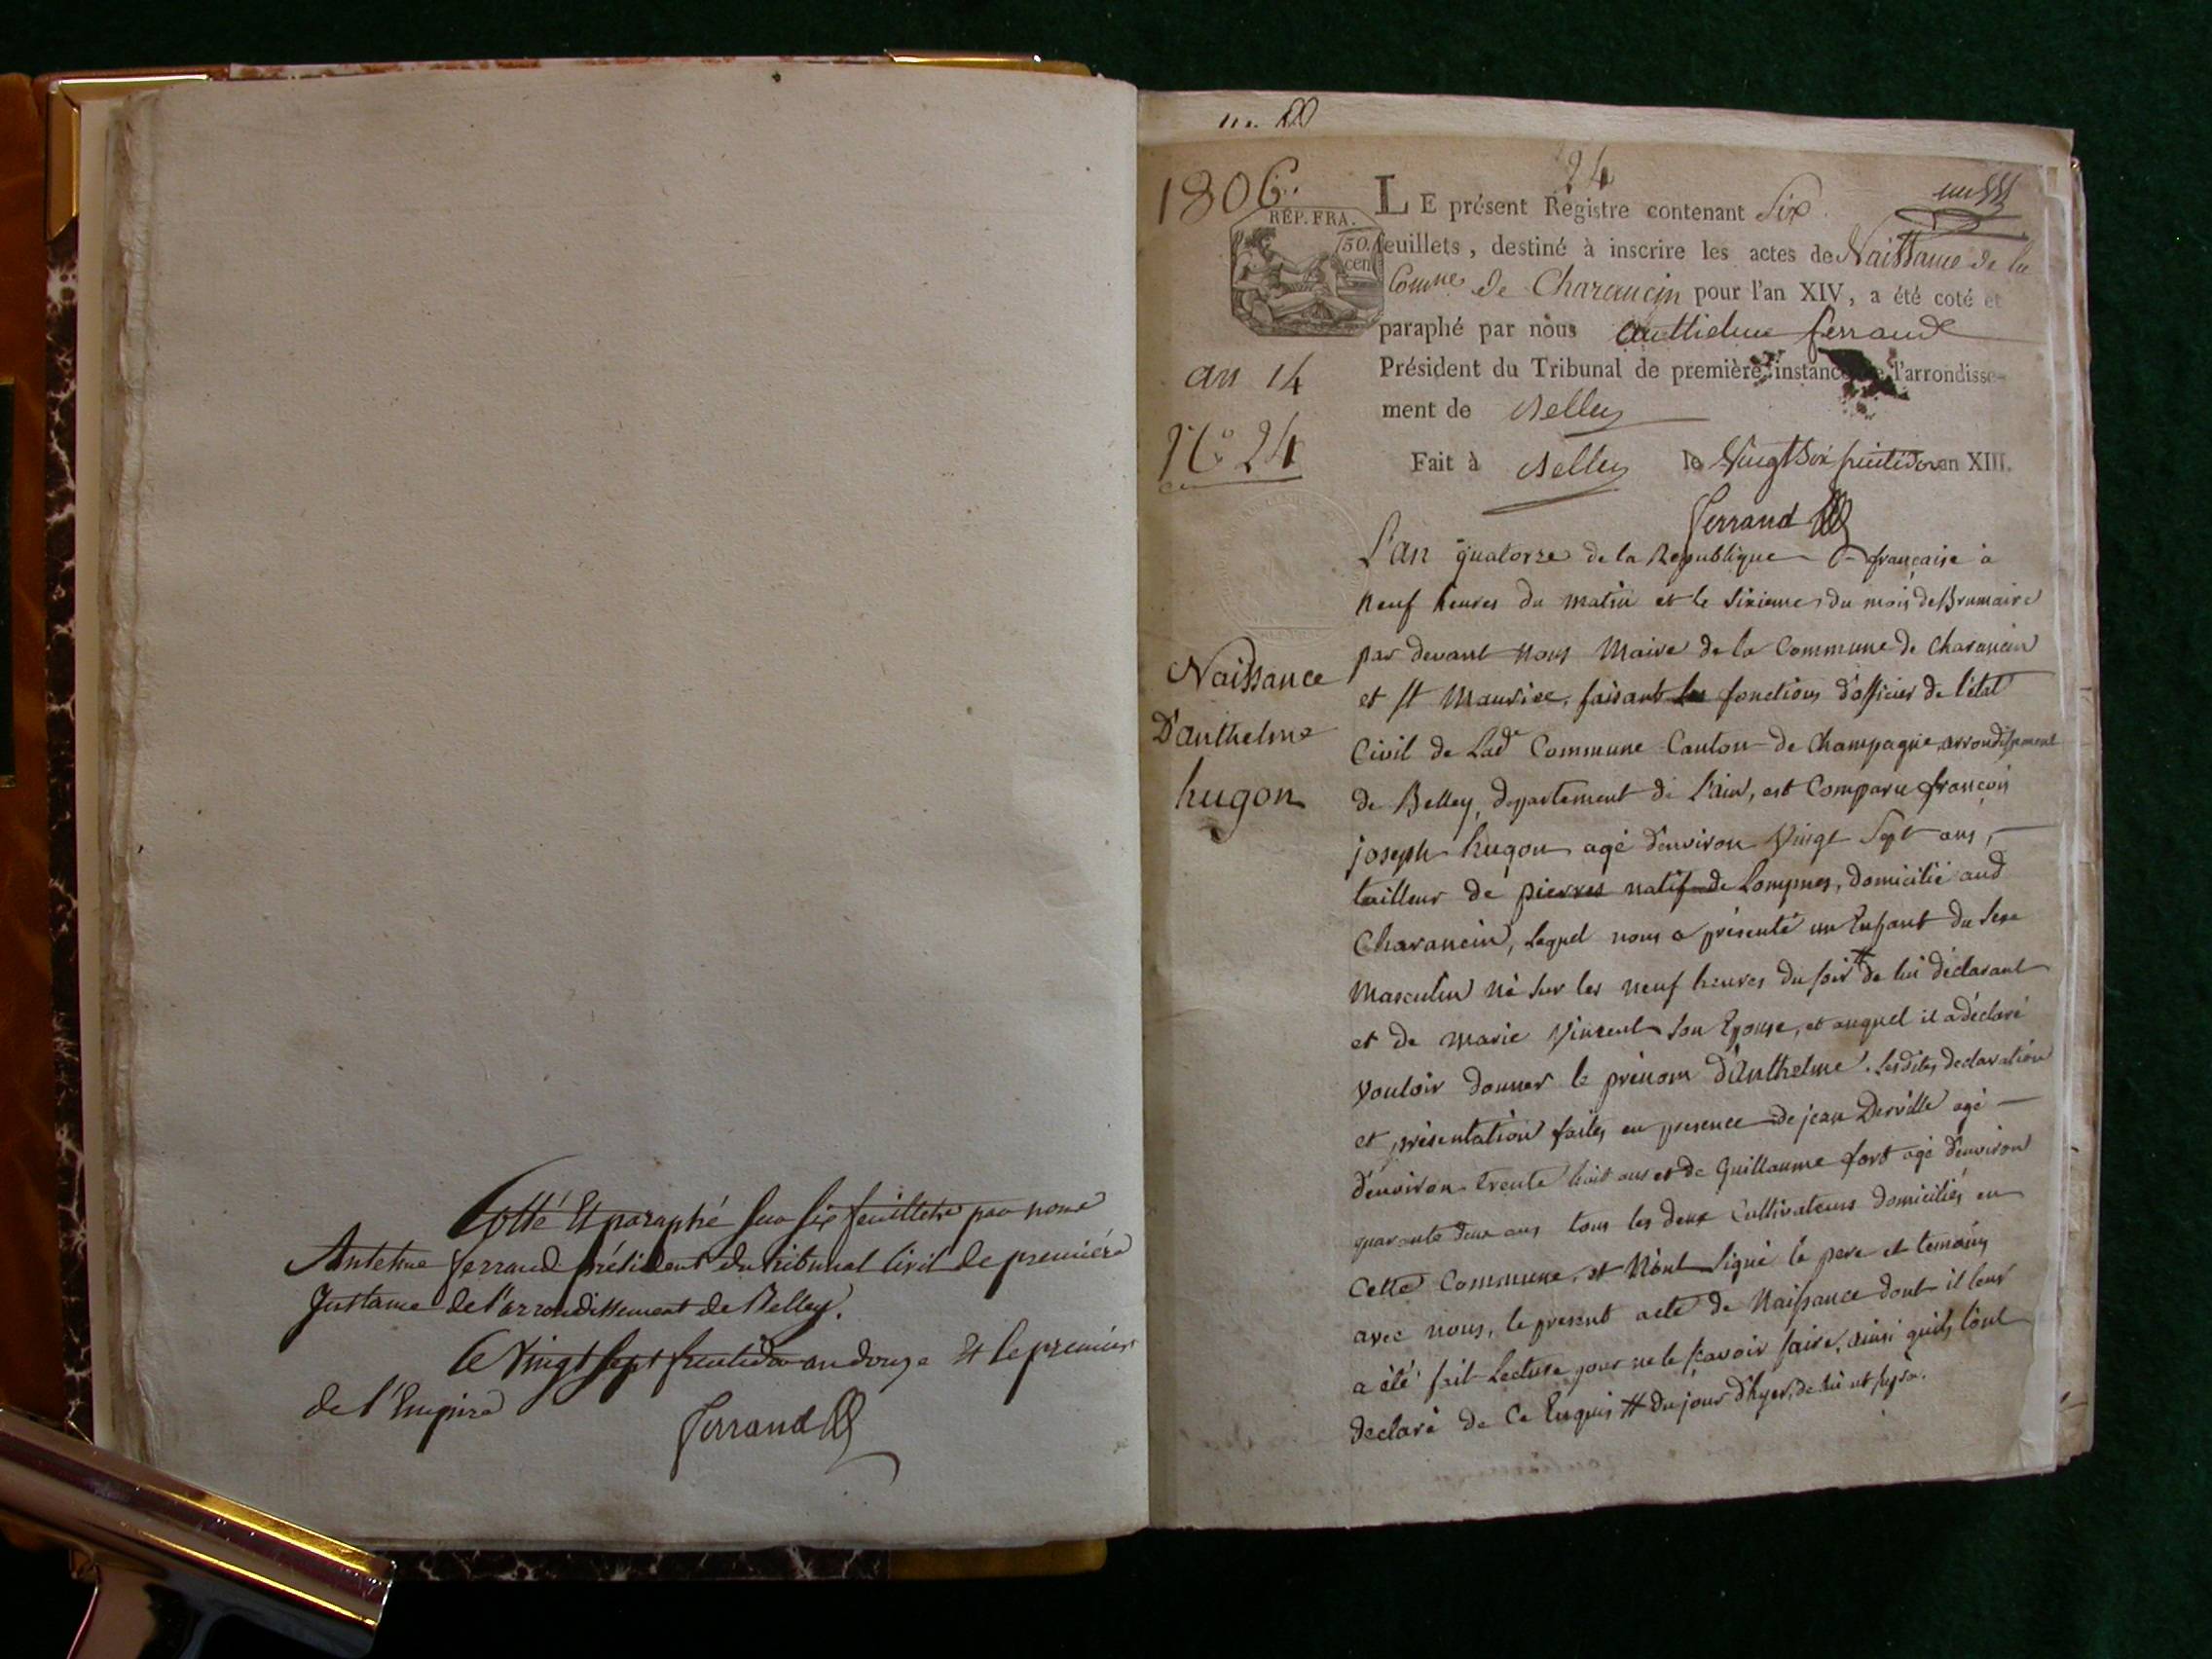 Cotté Et paraphé sur six feuillets par nous
Antelme ferrand président du tribunal Civil de première
Instance de l'arrondissement de Belley.
Ce vingt sept fructidor an douze Et le premier
de l'Empire
Ferrand
1806.
24
RÉP. FRA.
50
cen
LE présent Registre contenant Six
feuillets, destiné à inscrire les actes de Naissance de la
Comne de Charancin pour l'an XIV, a été coté et
paraphé par nous anthelme ferrand
Président du Tribunal de première instance de l'arrondisse-
ment de Belley
Fait à Belley le Vingt Six fructidor an XIII.
Ferrand
an 14
N.o 24
Naissance
D'anthelme
hugon
L'an quatorze de la Republique française à
neuf heures du matin et le Sixieme du mois de Brumaire
par devant nous Maire de la Commune de Charancin
et st Maurice, faisant les fonctions d'officier de l'état
Civil de Lade Commune Canton de Champagne, arrondissement
de Belley, departement de L'ain, est Comparu françois
joseph hugon agé d'environ Vingt Sept ans,
tailleur de pierres natif de Lompnes, domicilié aud
Charancin, Lequel nous a présenté un Enfant du Sexe
Masculin né sur les neuf heures du soir # de lui déclarant
et de marie Vincent Son Epouse, et auquel il a déclaré
Vouloir donner le prénom d'Anthelme. Lesdites declaration
et présentation faites en presence de jean Derville agé
d'environ trente huit ans et de Guillaume fort agé d'environ
quarante deux ans tous les deux Cultivateurs domiciliés en
Cette Commune, et N'ont Signé le pere et temoins
avec nous, le present acte de Naissance dont il leur
a été fait Lecture pour ne le sçavoir faire, ainsi quils l'ont
declaré de Ce Enquis # Du jour d'hyer, de lui ut supra.